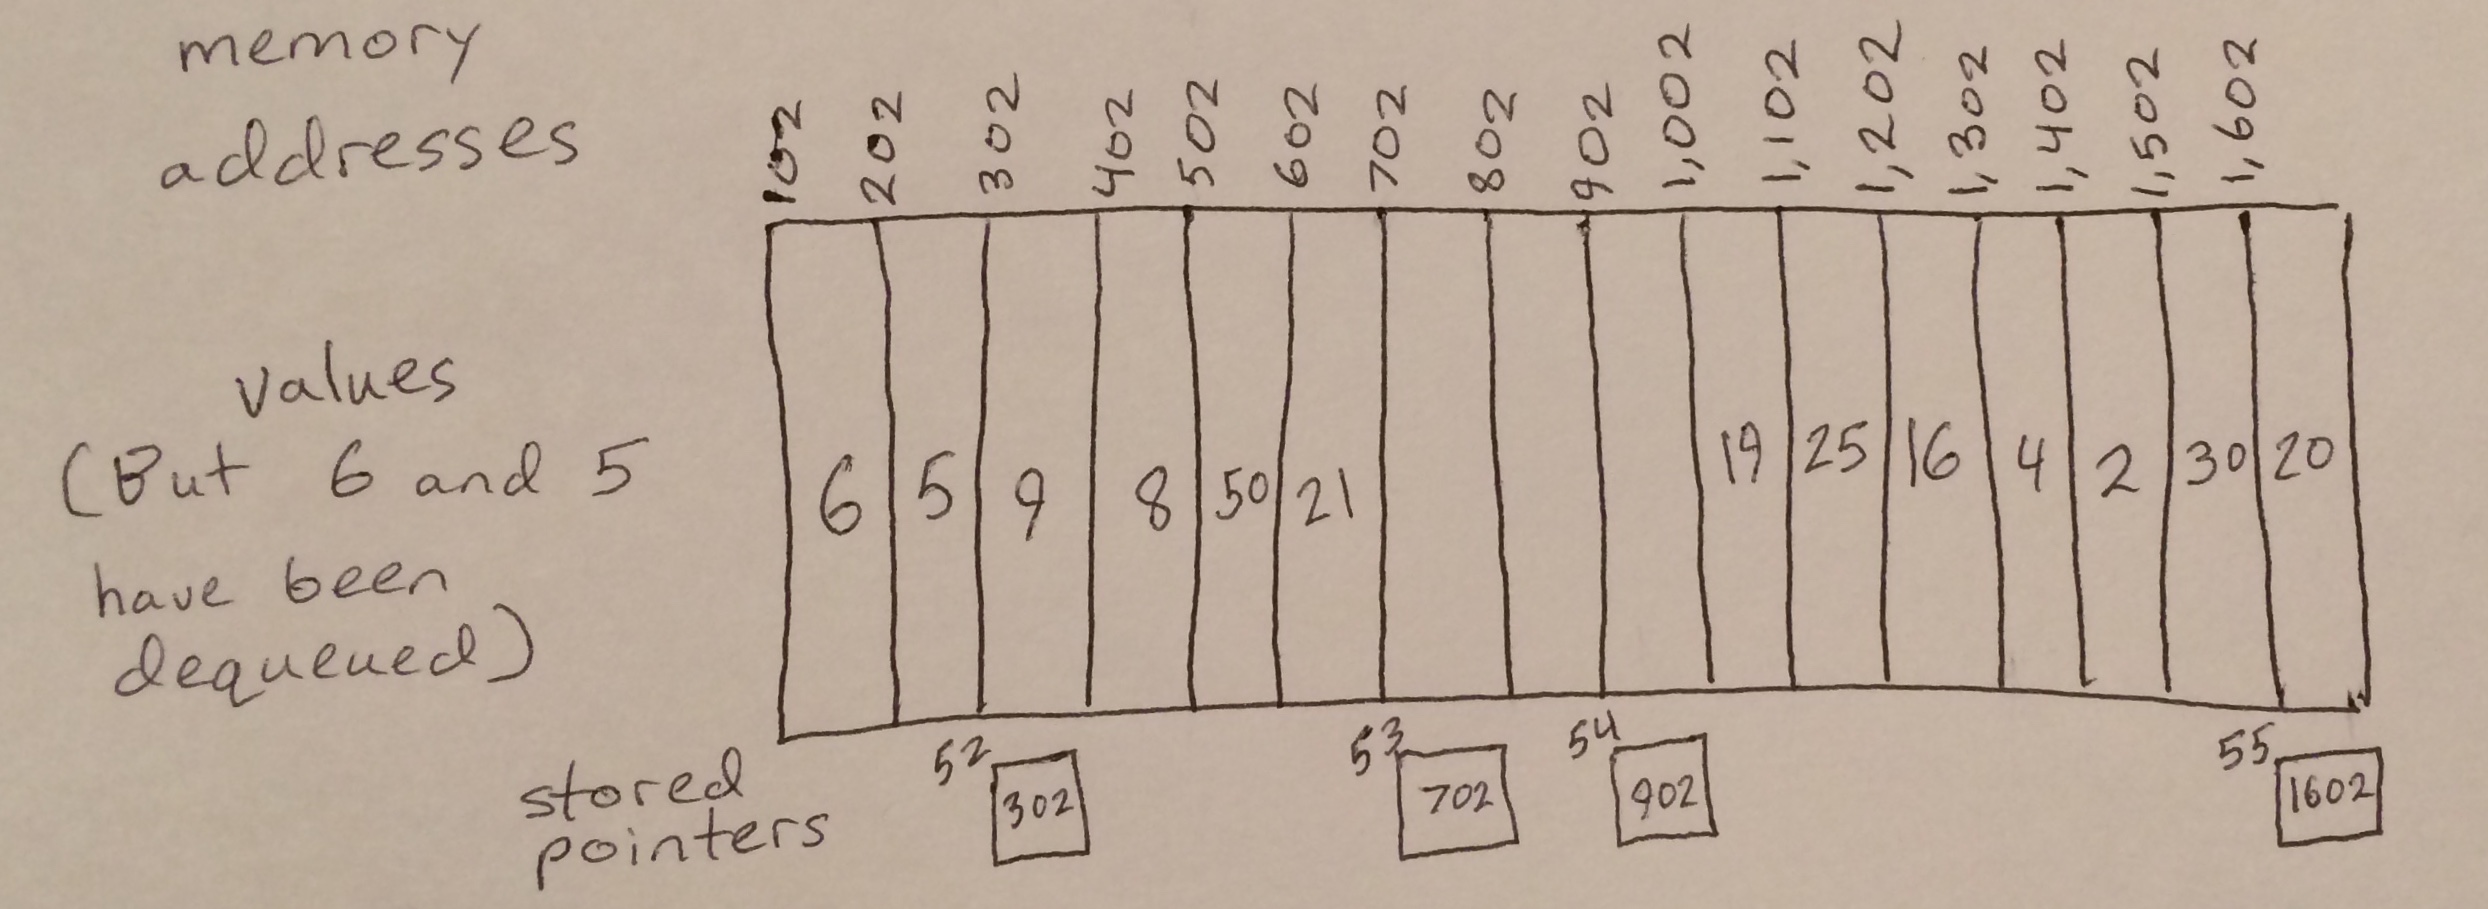 memory
addresses
102 202 302 402 502 602 702 802 902 1,002 1,102 1,202 1,302 1,402 1,502 1,602
values
(But 6 and 5
have been
dequeued)
6 5 9 8 50 21 19 25 16 4 2 30 20
stored
pointers
52 53 54 55
302 702 902 1602